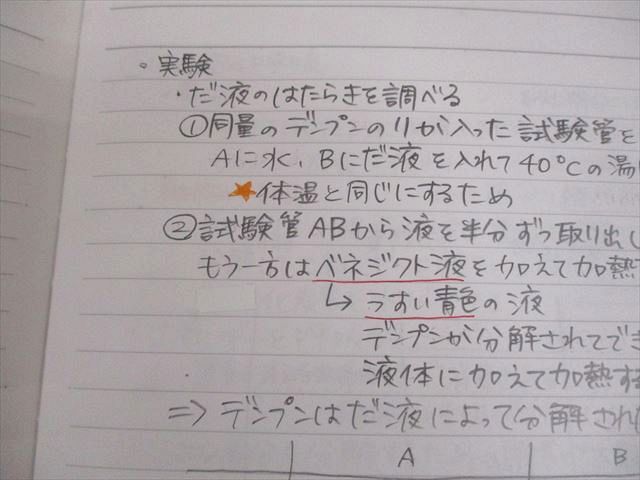 。実験
・だ液のはたらきを調べる
①同量のデンプンのりが入った試験管を
Aに水、Bにだ液を入れて40℃の湯
★体温と同じにするため
②試験管ABから液を半分ずつ取り出し
もう一方はベネジクト液を加えて加熱
↳うすい青色の液
デンプンが分解されてでき
液体に加えて加熱す
⇒デンプンはだ液によって分解され
A B